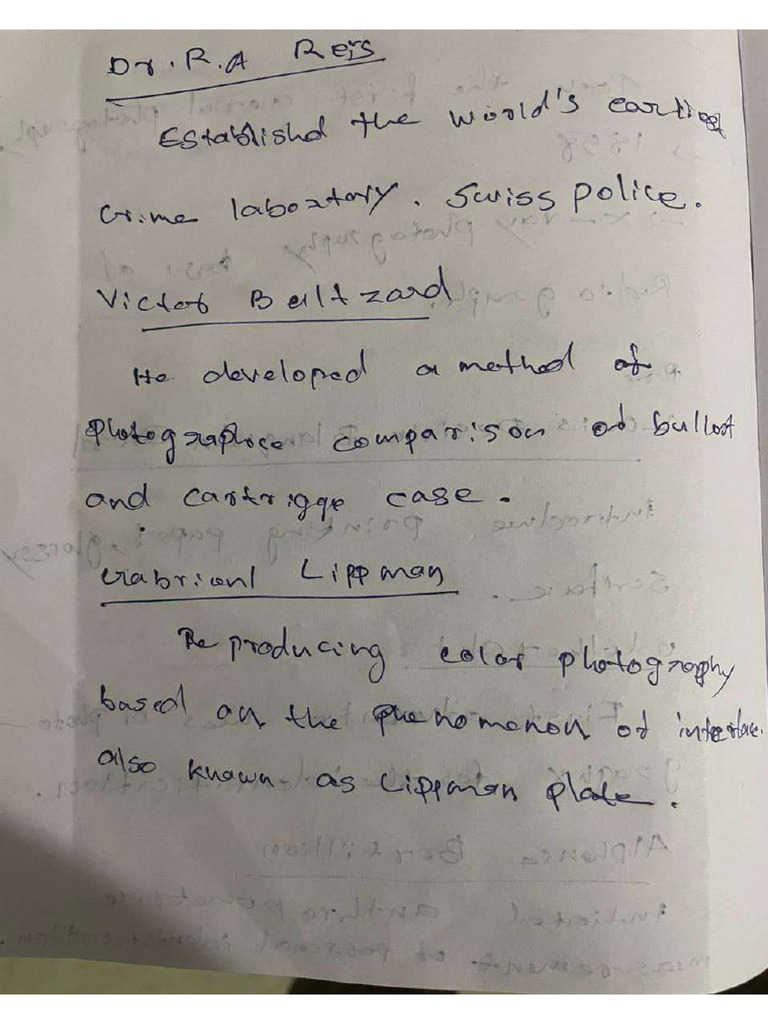 Dr. R.A Reis
Established the world's earliest
Crime laboratory. Swiss police.
Victor Baltzard
He developed a method of
photographice comparison of bullet
and cartrigge case.
Gabrienl Lippman
Reproducing color photography
based on the phenomenon of
also known as Lippman plate.